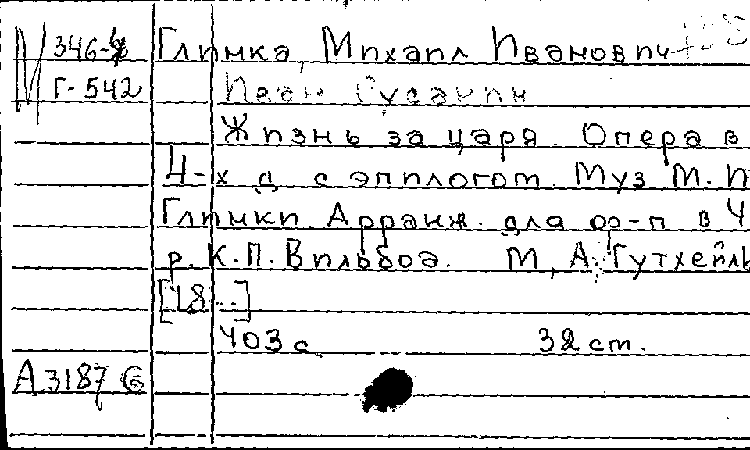 346-
Г-542
Глинка, Михаил Иванович
Иван Сусанин
Жизнь за царя. Опера в
4-х д. с эпилогом. Муз. М. И.
Глинки. Арранж. для ор-п в 4
р. К.П. Вильбоа. М, А. Гутхейль
[18..]
403 с. 32 ст.
А 3187 б